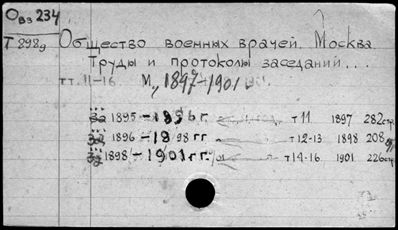 Овз 234
Т 898д
Общество военных врачей. Москва.
Труды и протоколы заседаний...
тт. 11-16 М., 1897-1901
за 1895-1896 г. т 11 1897 282 стр.
за 1896-1898 гг. т 12-13 1898 208
за 1898-1901 гг. т 14-16 1901 226 стр.